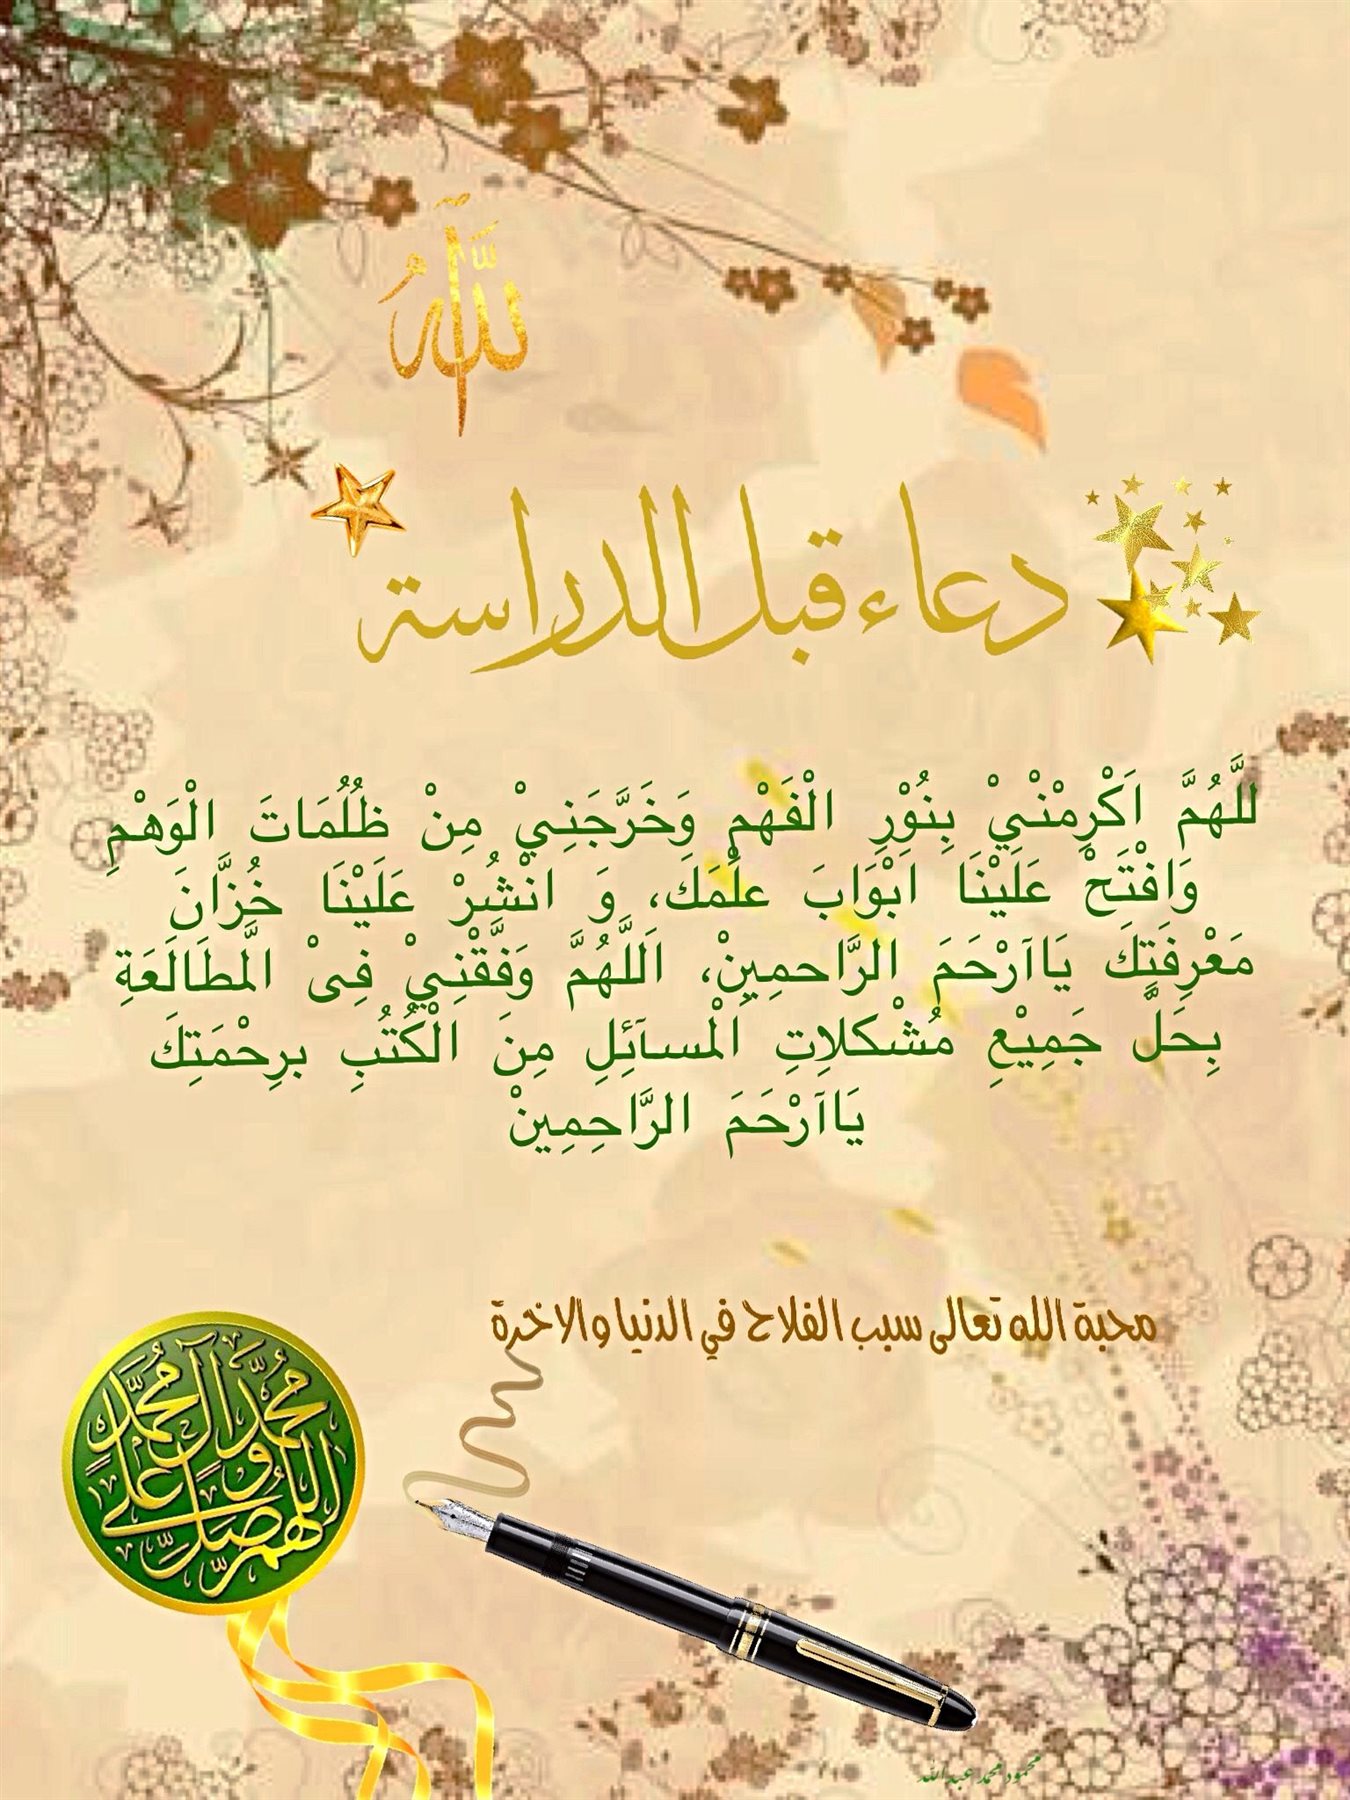 الله
دعاء قبل الدراسة
للَّهُمَّ اَكْرِمْنْيْ بِنُوْرِ الْفَهْمِ وَخَرَّجَنِيْ مِنْ ظُلُمَاتَ الْوَهْمِ
وَافْتَحْ عَلَيْنَا ابْوَابَ علْمَكَ، وَ انْشُرْ عَلَيْنَا خُزَّانَ
مَعْرِفَتِكَ يَاآرْحَمَ الرَّاحمِينْ، اَللَّهُمَّ وَفَّقْنِيْ فِىْ الَّمطَالَعَةِ
بِحَلَّ جَمِيْعِ مُشْكلاِتِ الْمسآئِلِ مِنَ الْكُتُبِ برِحْمَتِكَ
يَاآرْحَمَ الرَّاحِمِينْ
محبة الله تعالى سبب الفلاح في الدنيا والاخرة
اللهم صل على محمد وآل محمد
محمود محمد عبدالله